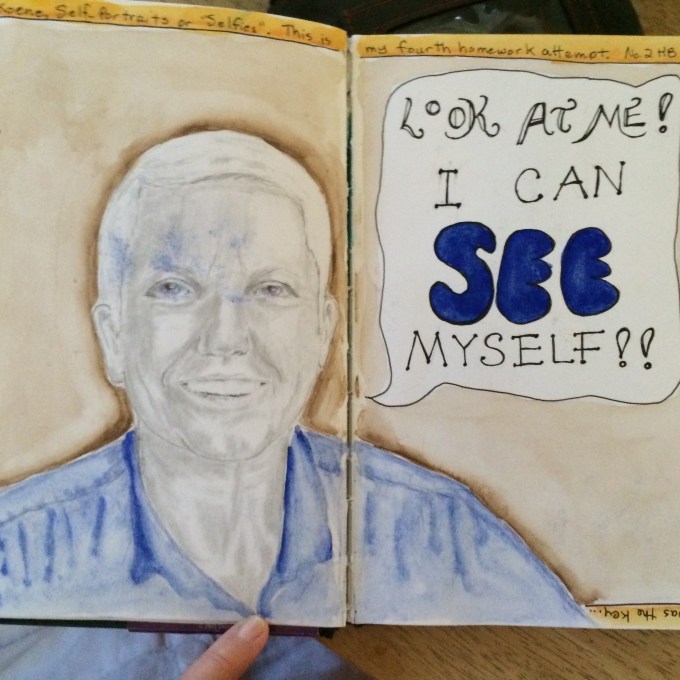 Self-Portraits or "Selfies". This is
my fourth homework attempt. No. 2 HB
LOOK AT ME!
I CAN
SEE
MYSELF!!
was the key...